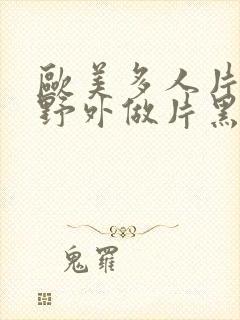 歐美多人片
野外做片黑
鬼羅